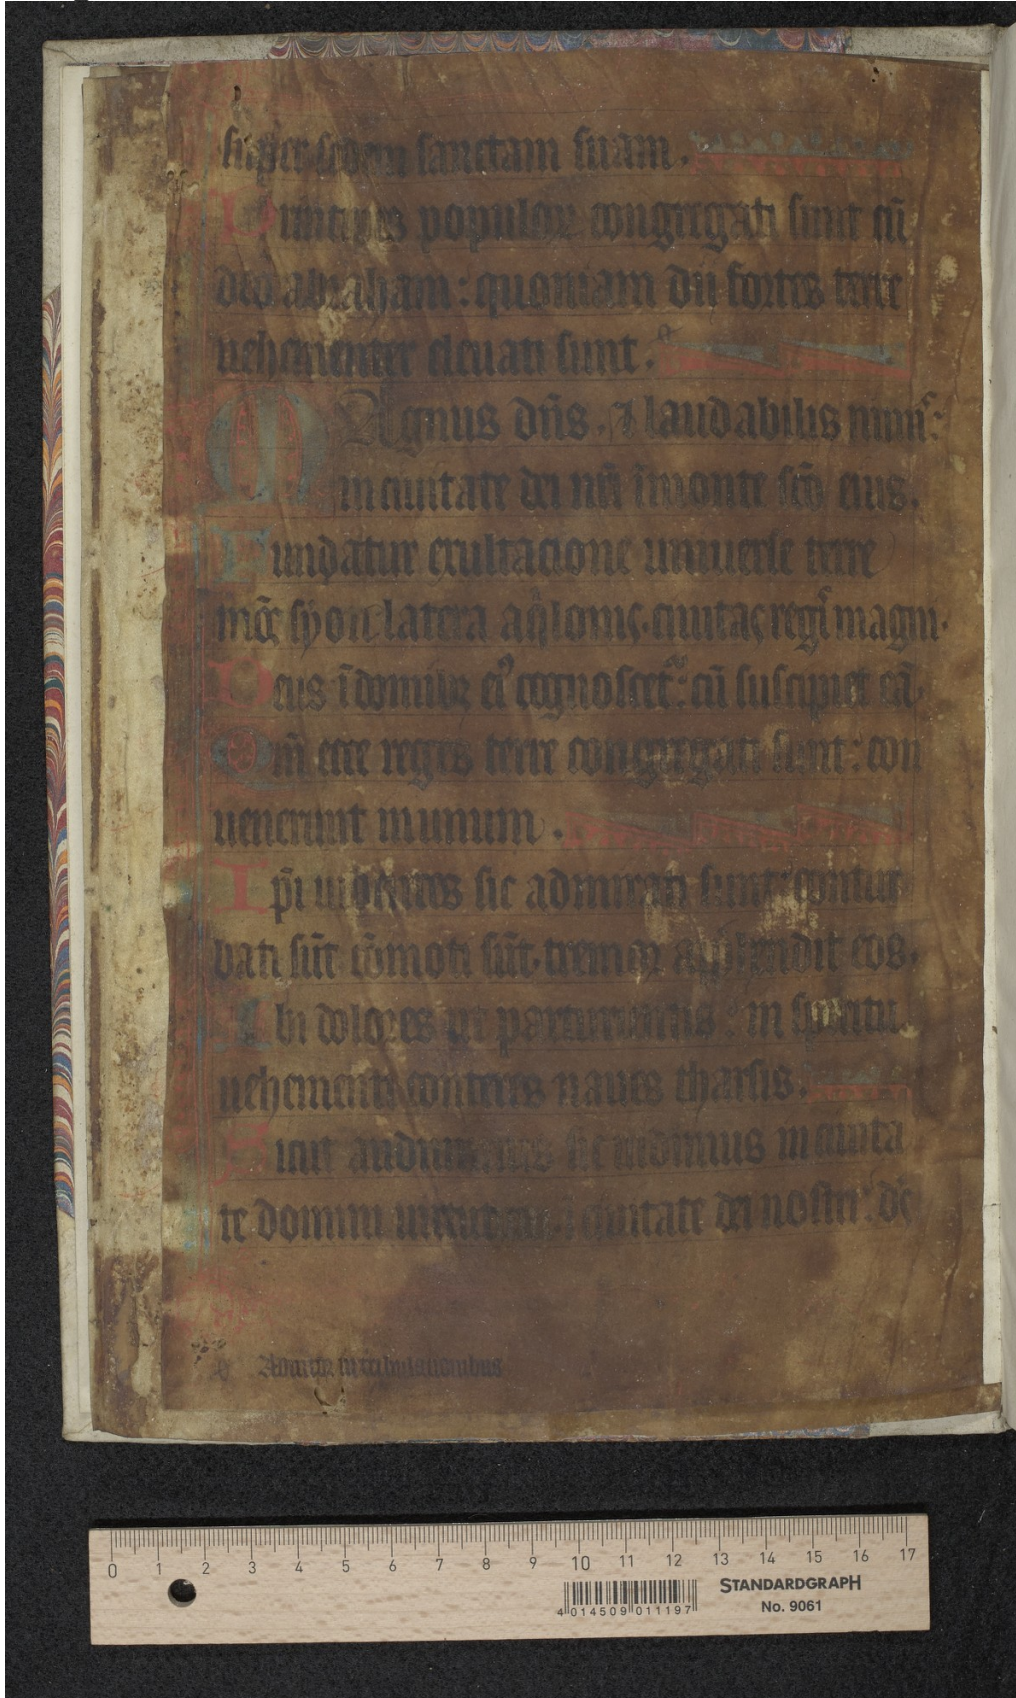 super sedem sanctam suam.
Principes populoꝝ congregati sunt cū
deo abraham: quoniam dii fortes terre
uehementer eleuati sunt.
MAgnus dn̄s. ⁊ laudabilis nimis:
in ciuitate dei nr̄i ī monte scō eius.
Fundatur exultacione uniuerse terre
mōs syon latera aq̍lonis. ciuitas regis magni.
Deus ī domibꝫ eiꝰ cognoscetur: cū suscipiet eā
Qm̄ ecce reges terre congregati sunt: con
uenerunt in unum.
Ip̄i uidentes sic admirati sunt: contur
bati sūt cōmoti sūt. tremor app̄hendit eos.
Ibi dolores ut parturientis: in spiritu
uehementi conteres naues tharsis.
Sicut audiuimus sic uidimus in ciuita
te domini uirtutum ī ciuitate dei nostri: dē
Adiutor in tribulationibus
0 1 2 3 4 5 6 7 8 9 10 11 12 13 14 15 16 17
STANDARDGRAPH
No. 9061
4 014509 011197